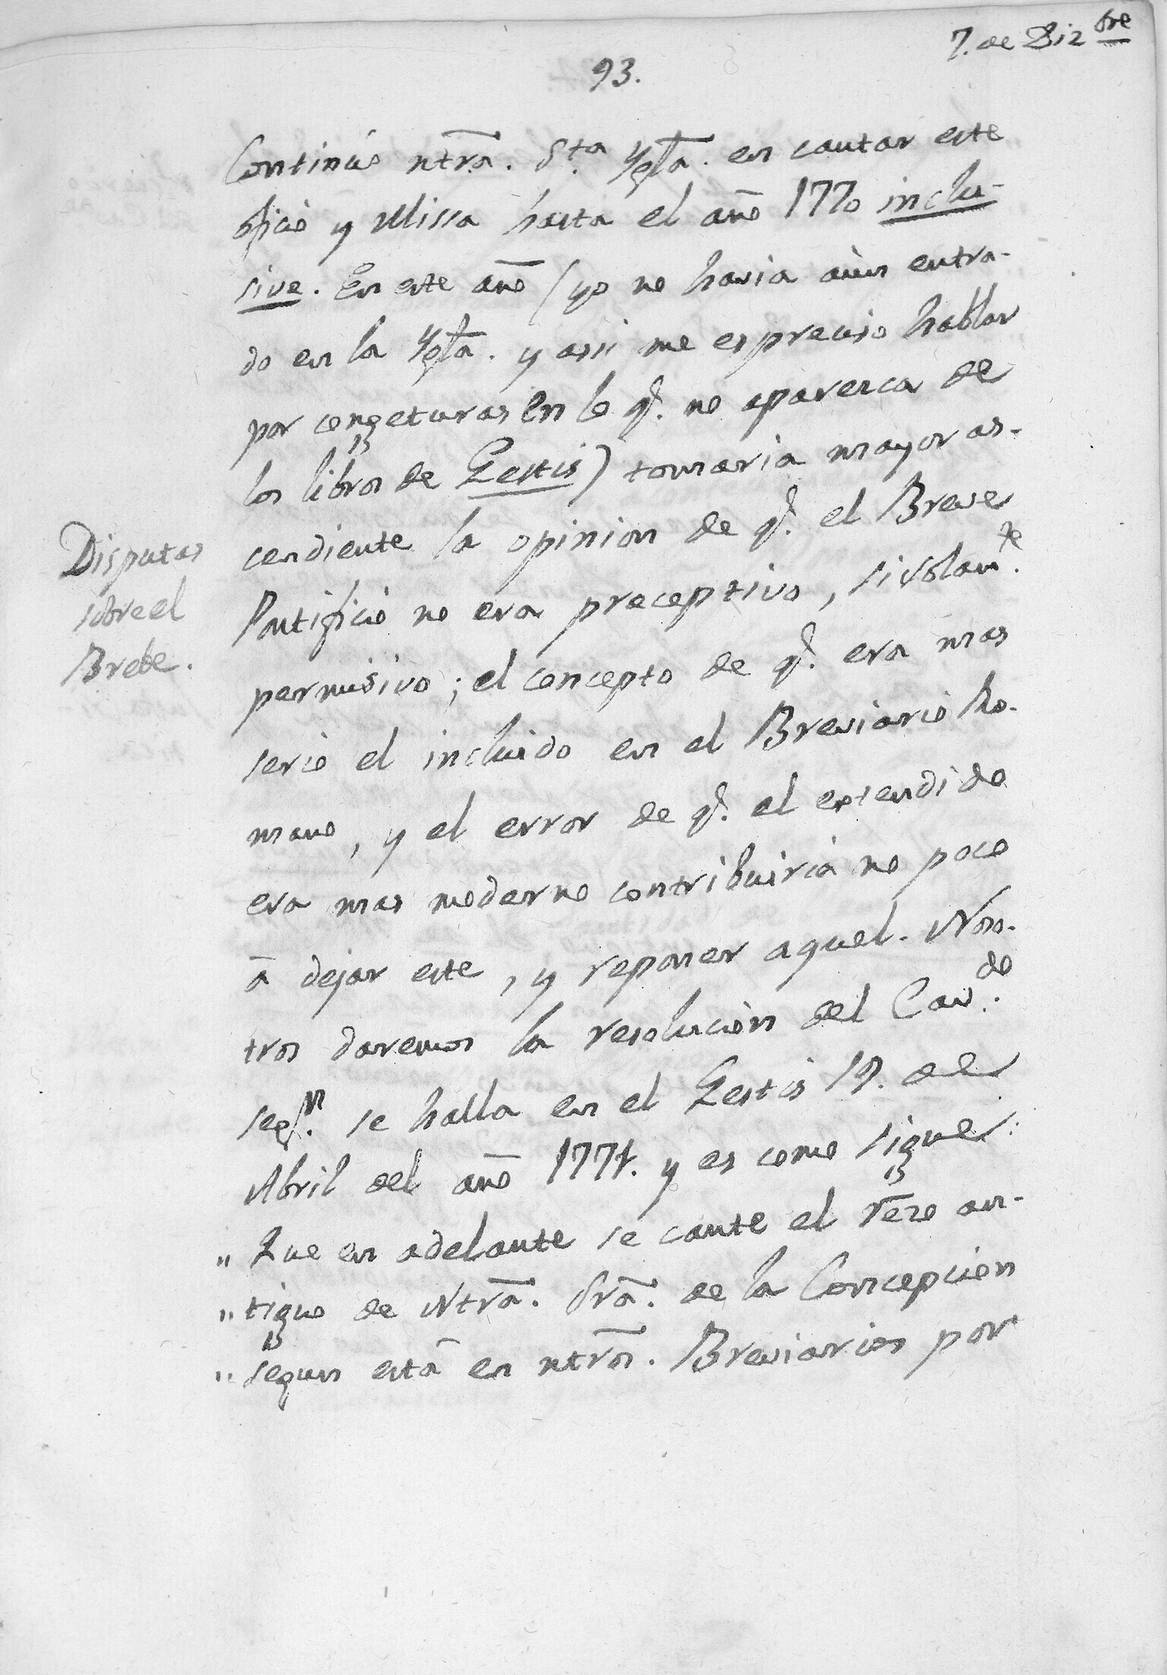 7. de Diz.bre
93.
Continuó ntrã. S.ta Ygl̃a. en cantar este
oficio y Missa hasta el año 1770 inclu-
sive. En este año (yo no havia aùn entra-
do en la Ygl̃a. y assi me es preciso hablar
por congeturas en lo q̃. no aparezca de
los libros de Gestis) tomaria mayor as-
cendiente la opinion de q̃. el Breve
Disputas
sobre el
Brebe.
Pontificio no era preceptivo, si solam.te
permisivo; el concepto de q̃. era mas
serio el incluido en el Breviario Ro-
mano, y el error de q̃. el extendido
era mas moderno contribuiria no poco
à dejar este, y reponer aquel. Noso-
tros daremos la resolucion del Cav.do
seg.n se halla en el Gestis 19. de
Abril del año 1771. y es como sigue:
" Que en adelante se cante el rezo an-
" tiguo de Ntrã. Srã. de la Concepcion
" segun està en ntrõs. Breviarios por